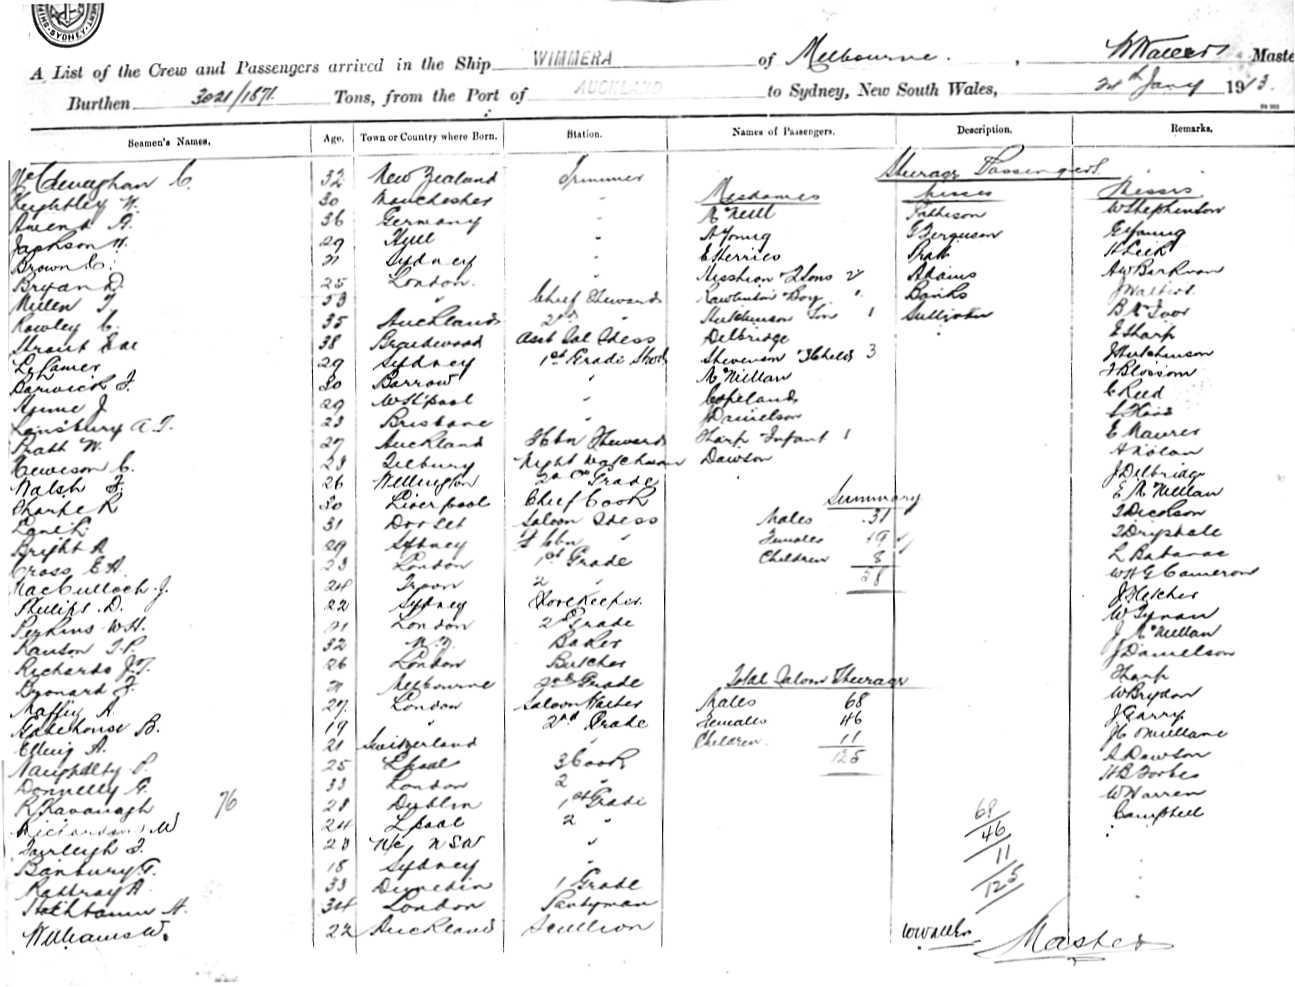 SHIPPING SYDNEY
A List of the Crew and Passengers arrived in the Ship WIMMERA of Melbourne, Master
Burthen 3021/1871 Tons, from the Port of AUCKLAND to Sydney, New South Wales, 24th Jany 1913.
Seamen's Names. Age. Town or Country where Born. Station. Names of Passengers. Description. Remarks.
Steerage Passengers
C. 32 New Zealand Trimmer
Keightley W. 30 Manchester " Mesdames Misses Messrs
36 Germany " McNeill Pattison W Stephenson
Jackson H. 29 Hull " A Young G Ferguson E Young
Brown C. 21 Sydney " E Herries Pratt H Leek
Bryan D. 25 London " 2 Sons 2 Adams
53 " Chief Steward Boy " Banks
Rowley C. 35 Auckland 2nd " Hutchinson Son 1 Sullivan B McIvor
38 Braidwood Asst Sal Mess Delbridge E Sharp
29 Sydney 1st Grade Stwd Stevenson 3 Childs 3 J Hutchinson
Barwick F. 30 Barrow " McMillan F Blossom
Hume J 29 W Htpool " Copeland C Reed
A.T. 23 Brisbane " J Danielson
Pratt W. 27 Auckland F Cbn Steward Sharp Infant 1 E Maurer
Hewison C. 23 Tilbury Night Watchman Dawson H Nolan
Walsh F. 26 Wellington 2nd Ck Grade J Delbridge
Sharpe R 30 Liverpool Chief Cook Summary E McMillan
Lane L. 31 Dorset Saloon Mess Males 31
Bright A 29 Sydney F Cbn " Females 19 T Drysdale
Cross E A. 23 London 1st Grade Children 8
MacCulloch J. 24 Troon 2 " 58 W H G Cameron
Philips D. 22 Sydney Storekeeper J Fletcher
Perkins W.H. 21 London 2nd Grade W Tynan
Ranson T.P. 32 N.Z. Baker J McMillan
Richards J.T. 26 London Butcher J Danielson
F. 21 Melbourne 2nd Grade Total Saloon Steerage Sharp
Maffey A. 27 London Saloon Waiter Males 68 W Brydon
Gatehouse B. 19 " 2nd Grade Females 46 J Garry
A. 21 Switzerland " Children 11
Naughalty P. 25 L'pool 3 Cook 125 A Dawson
Donnelly G. 33 London 2 " H B Forbes
R Kavanagh 76 28 Dublin 1st Grade W Warren
Richardson W 24 L'pool 2 " 68 Campbell
Fairleigh F. 23 N/c NSW " 46
Banbury F. 18 Sydney " 11
Rattray A 33 Dunedin 1 Grade 125
H. 34 London Pantryman
Williams W. 22 Auckland Scullion W Waller Master